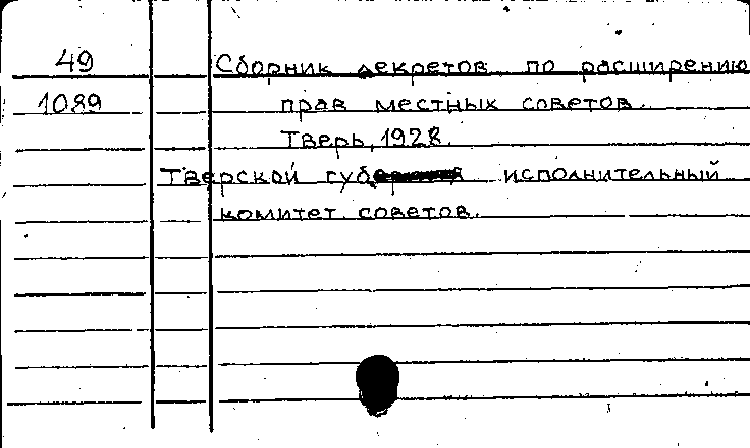 49 Сборник декретов по расширению
1089 прав местных советов.
Тверь, 1928.
Тверской губ. исполнительный
комитет советов.